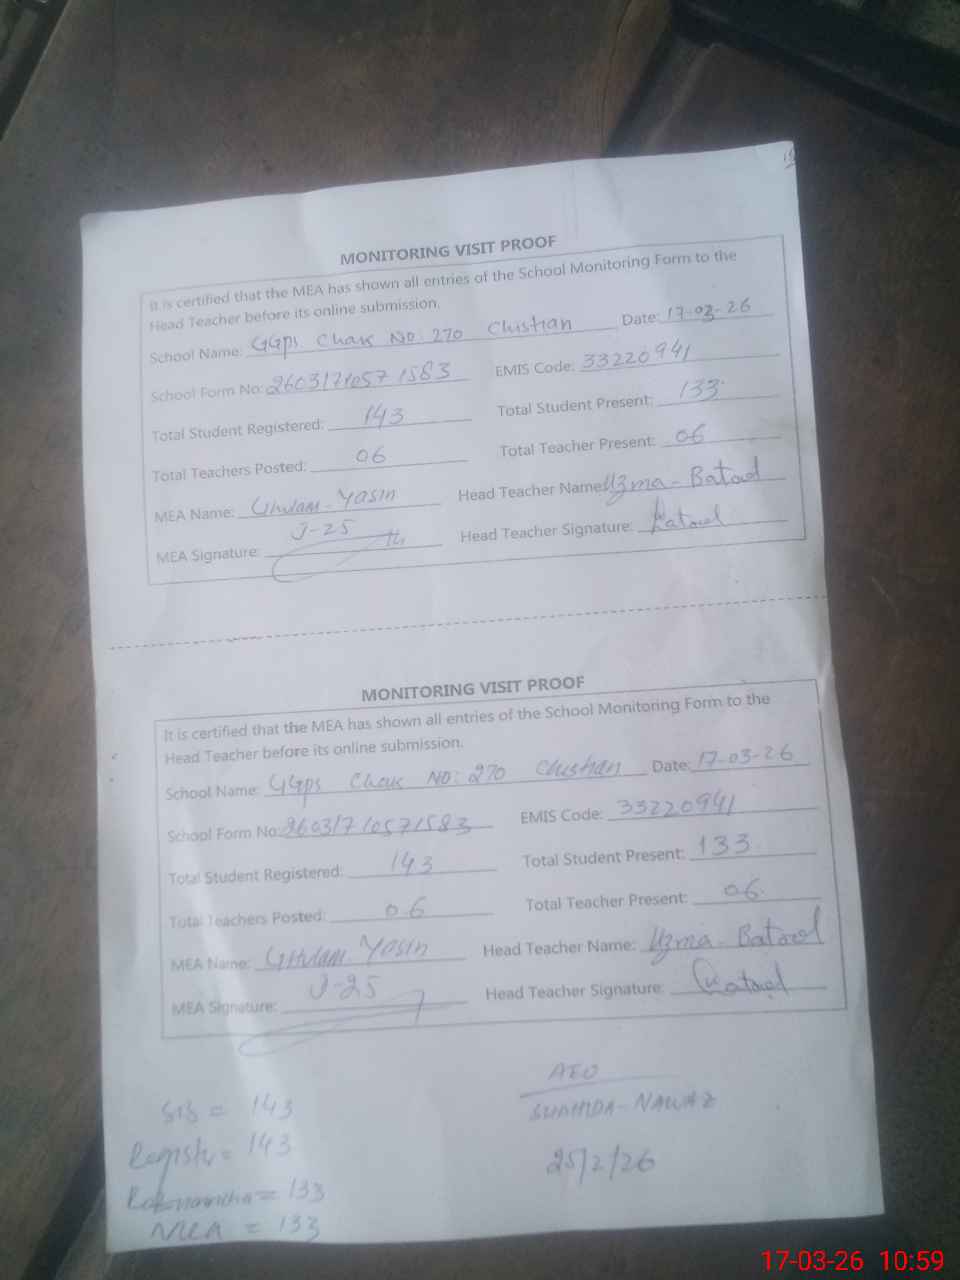 MONITORING VISIT PROOF
It is certified that the MEA has shown all entries of the School Monitoring Form to the
Head Teacher before its online submission.
School Name: GGPS Chak No. 270 Chistian Date: 17-03-26
School Form No: 2603171057 1583 EMIS Code: 33220941
Total Student Registered: 143 Total Student Present: 133
Total Teachers Posted: 06 Total Teacher Present: 06
MEA Name: Ghulam Yasin Head Teacher Name: Uzma - Batool
J-25
MEA Signature: Head Teacher Signature: Batool
MONITORING VISIT PROOF
It is certified that the MEA has shown all entries of the School Monitoring Form to the
Head Teacher before its online submission.
School Name: GGPS Chak No: 270 Chishtian Date: 17-03-26
School Form No: 2603171057 1583 EMIS Code: 33220941
Total Student Registered: 143 Total Student Present: 133
Total Teachers Posted: 06 Total Teacher Present: 06
MEA Name: Ghulam Yasin Head Teacher Name: Uzma - Batool
J-25
MEA Signature: Head Teacher Signature: Batool
AEO
NAWAZ
25/2/26
SIS = 143
Register = 143
= 133
MEA = 133
17-03-26 10:59